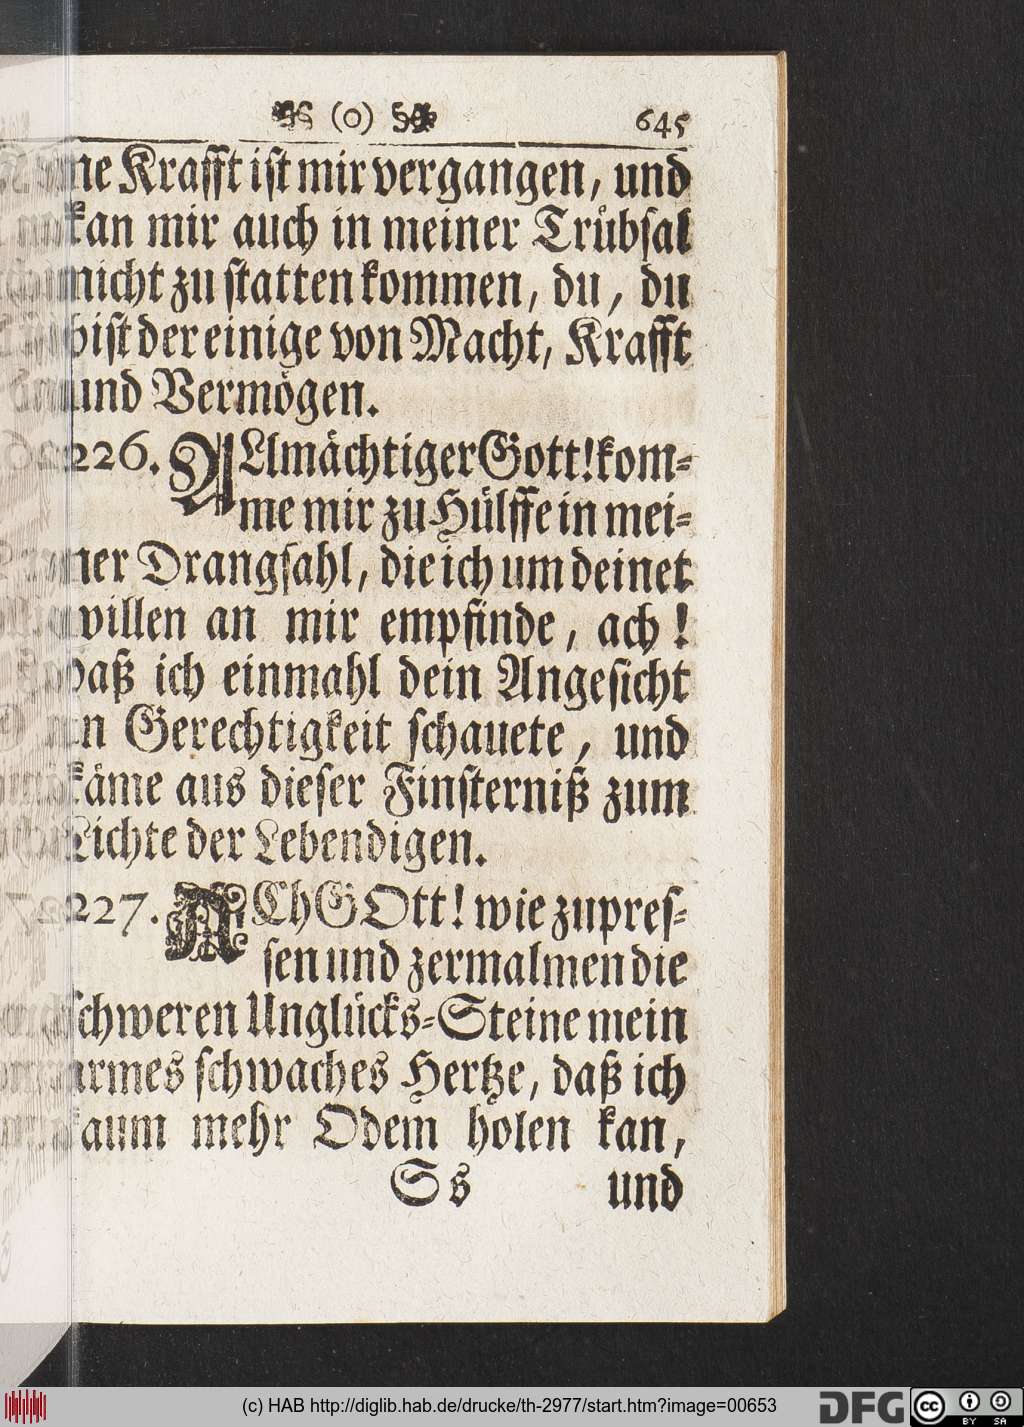 (o) 645
ne Krafft ist mir vergangen, und
kan mir auch in meiner Trübsal
nicht zu statten kommen, du, du
bist der einige von Macht, Krafft
und Vermögen.
2226. ALlmächtiger Gott! kom-
me mir zu Hülffe in mei-
ner Drangsahl, die ich um deinet
willen an mir empfinde, ach!
daß ich einmahl dein Angesicht
in Gerechtigkeit schauete, und
käme aus dieser Finsterniß zum
Lichte der Lebendigen.
2227. ACh GOtt! wie zupres-
sen und zermalmen die
schweren Unglücks-Steine mein
armes schwaches Hertze, daß ich
kaum mehr Odem holen kan,
Ss und
(c) HAB http://diglib.hab.de/drucke/th-2977/start.htm?image=00653
DFG
cc BY SA